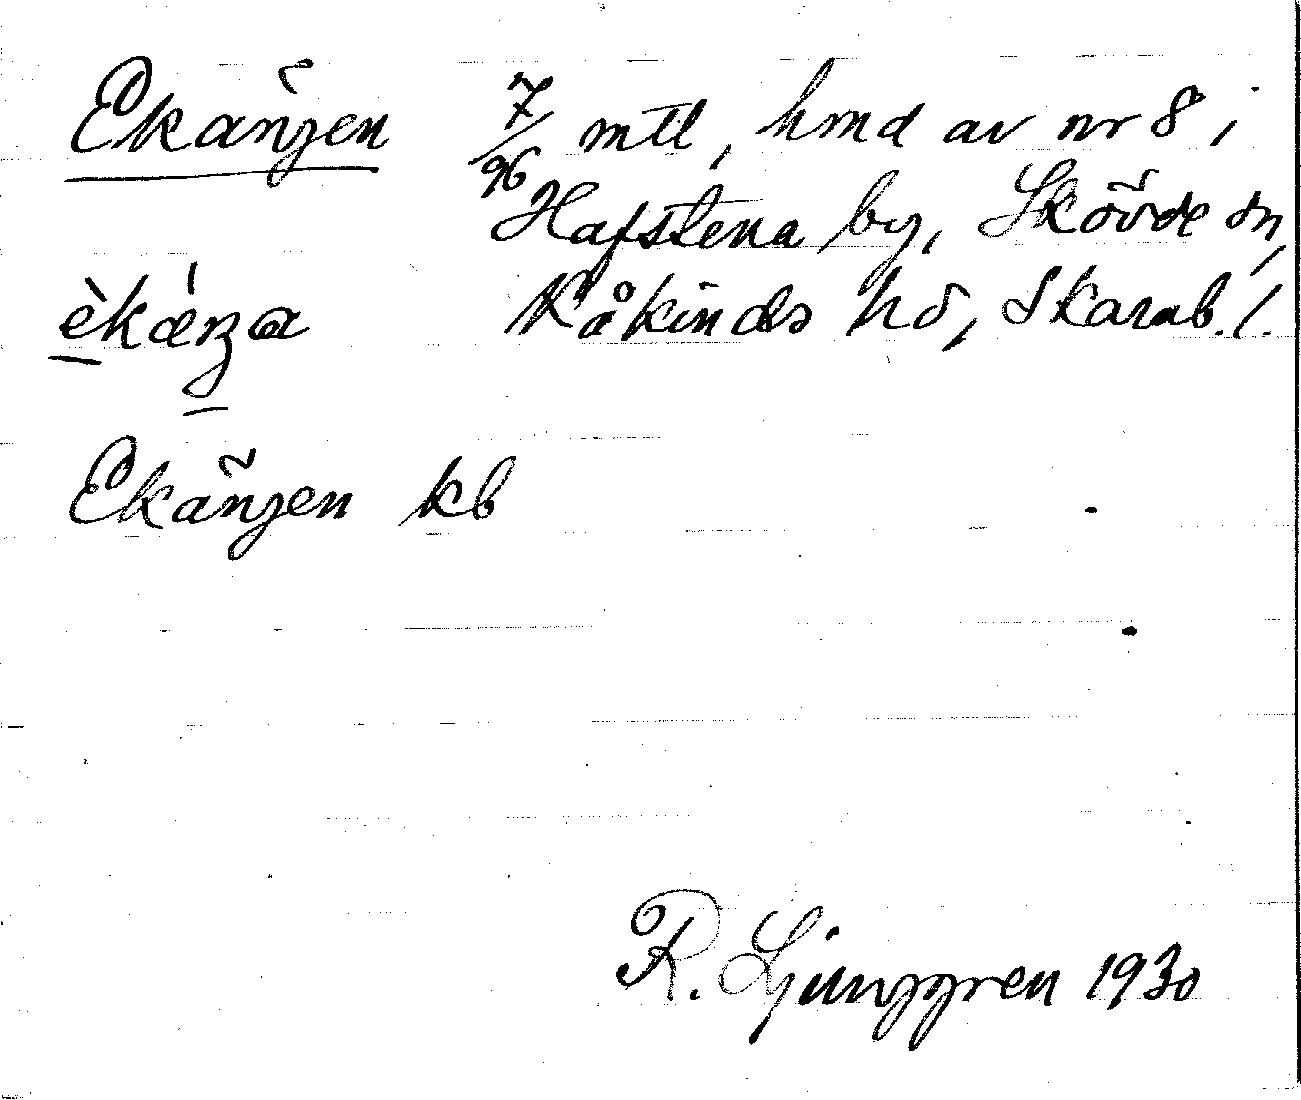 Ekängen 7/96 mtl, hmd av nr 8 i
Hafstena by, Skövde sn,
Kåkinds hd, Skarab. l.
Ekängen kb
R. Ljunggren 1930